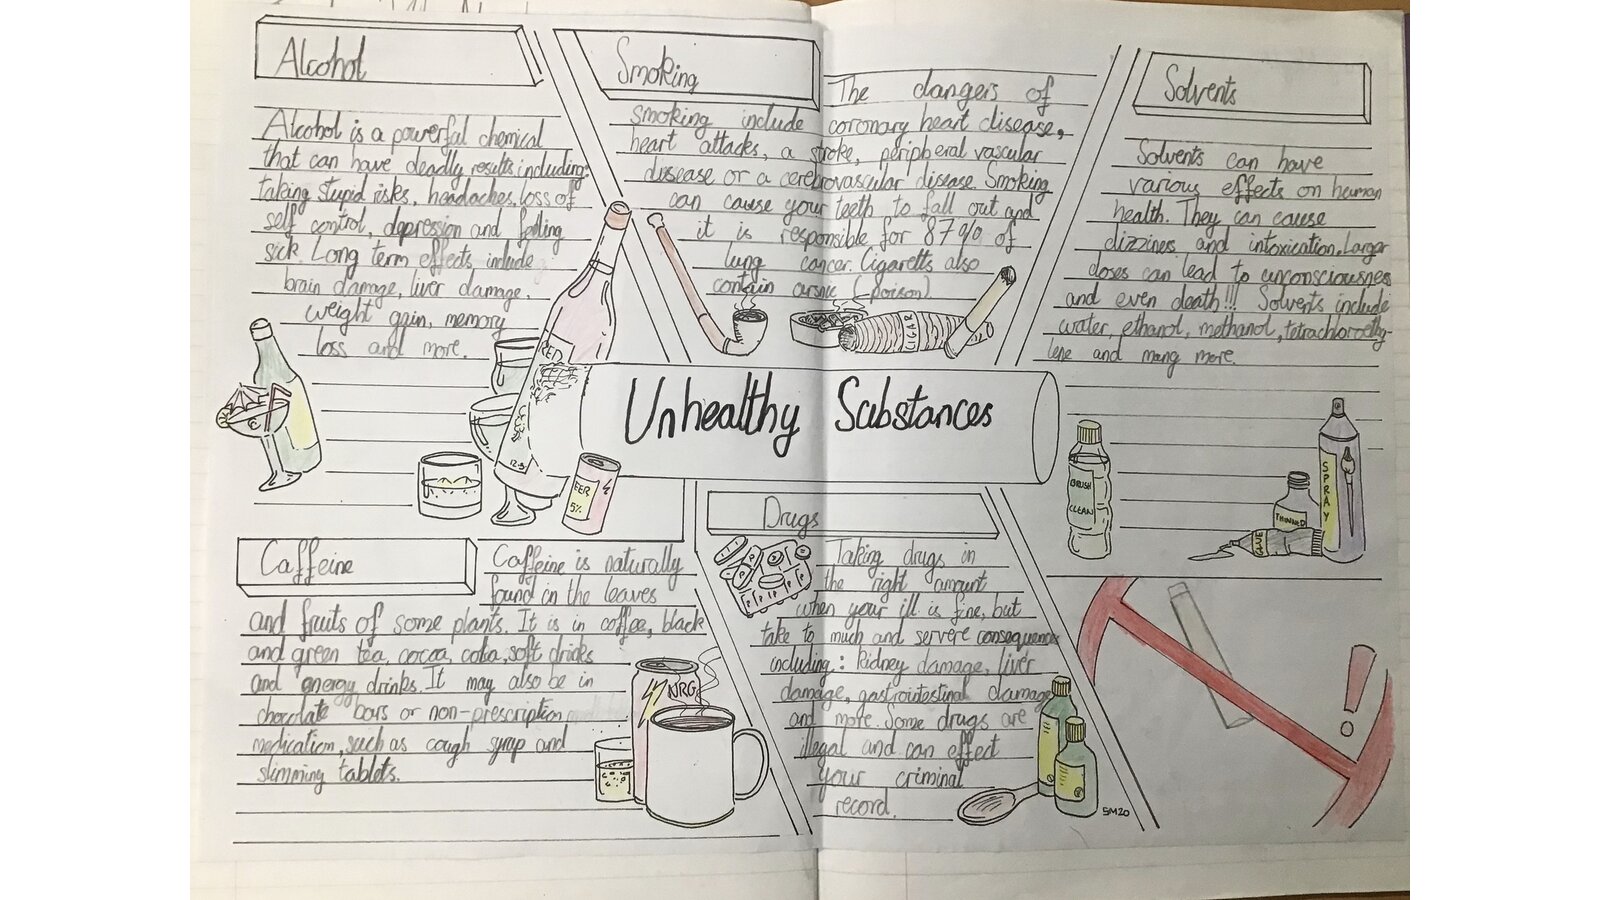 Alcohol
Alcohol is a powerful chemical
that can have deadly results including:
taking stupid risks, headaches, loss of
self control, depression and falling
sick. Long term effects include
brain damage, liver damage,
weight gain, memory
loss and more.
RED
12.5
BEER
5%
Smoking
The dangers of
smoking include coronary heart disease,
heart attacks, a stroke, peripheral vascular
disease or a cerebrovascular disease. Smoking
can cause your teeth to fall out and
it is responsible for 87% of
lung cancer. Cigaretts also
contain arsnic (poison)
CIGAR
Solvents
Solvents can have
various effects on human
health. They can cause
dizziness and intoxication. Larger
doses can lead to unconsciousness
and even death!!! Solvents include
water, ethanol, methanol, tetrachloroethy-
lene and many more.
BRUSH
CLEAN
THINNER
GLUE
SPRAY
Unhealthy Substances
Caffeine
Caffeine is naturally
found in the leaves
and fruits of some plants. It is in coffee, black
and green tea, cocoa, coba, soft drinks
and energy drinks. It may also be in
chocolate bars or non-prescription
medication, such as cough syrup and
slimming tablets.
NRG
Drugs
Taking drugs in
the right amount
when your ill is fine, but
take to much and servere consequences
including: kidney damage, liver
damage, gastrointestinal damage
and more. Some drugs are
illegal and can effect
your criminal
record.
SM20
!